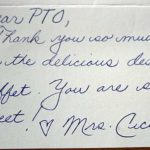 ear PTO,
Thank you so mu
the delicious de
ffet. You are s
eet! ♡ Mrs. Cic